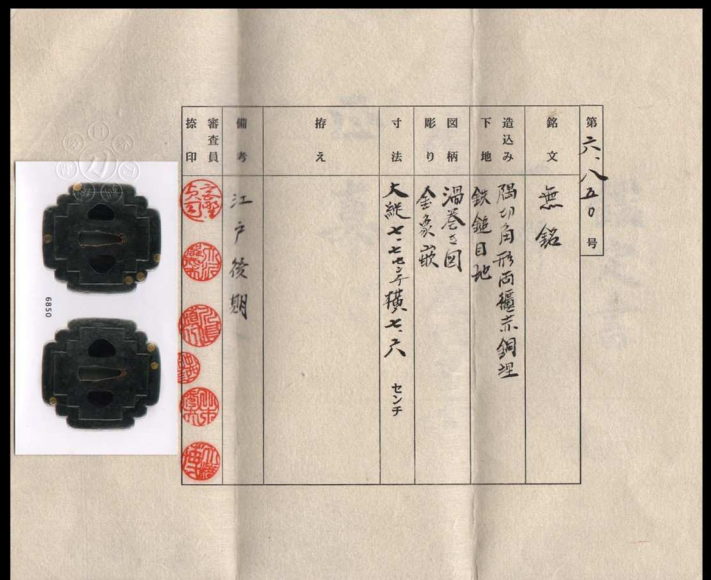 第六、八五〇号
銘文
無銘
造込み
下地
隅切角形両櫃赤銅埋
鉄鎚目地
図柄
彫り
渦巻き図
金象嵌
寸法
大縦七・七七センチ横七・六センチ
拵え
備考
江戸後期
審査員
捺印
6850